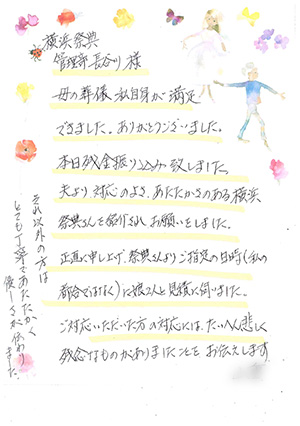 横浜祭典
管理部長谷川 様
母の葬儀 私自身が満足
できました。ありがとうございました。
本日残金振り込み致しました。
夫より対応のよさ、あたたかさのある横浜
祭典さんを紹介され お願いをしました。
正直に申し上げ、祭典さんよりご指定の日時(私の
都合ではなく)に娘2人と見積に伺いました。
ご対応いただいた方の対応には、たいへん悲しく
残念なものがありましたことを お伝えします
それ以外の方は
とても丁寧であたたかく
優しさが伝わりました。